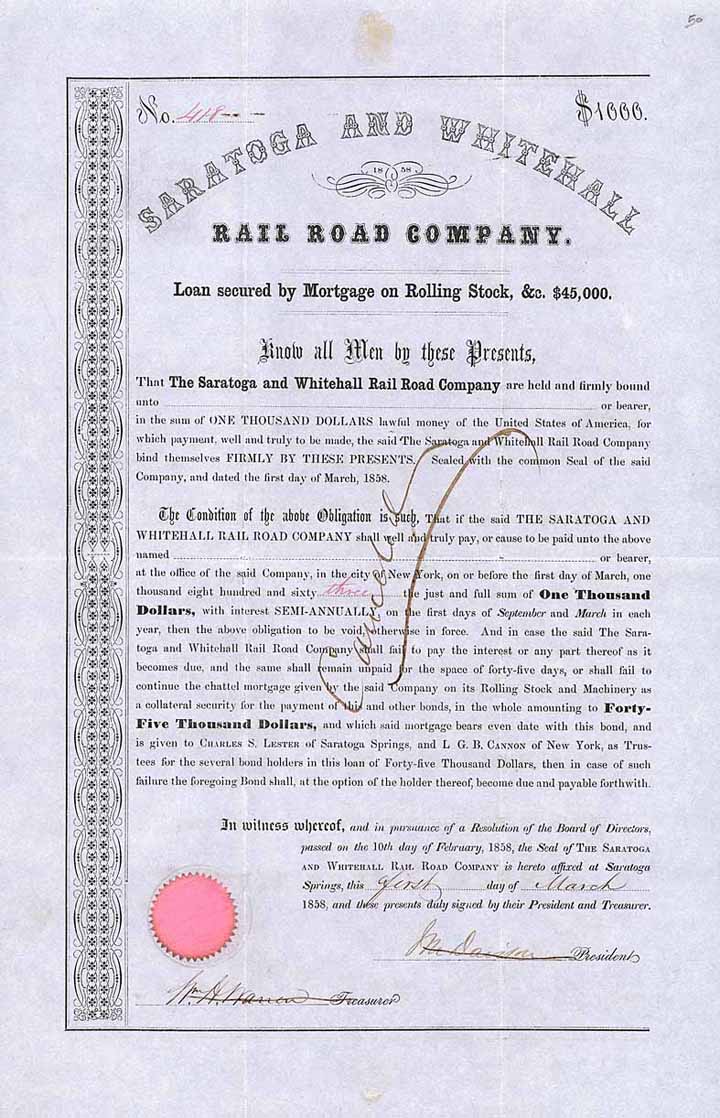 50
No. 418
$1000.
SARATOGA AND WHITEHALL
1858
RAIL ROAD COMPANY.
Loan secured by Mortgage on Rolling Stock, &c. $45,000.
Know all Men by these Presents,
That The Saratoga and Whitehall Rail Road Company are held and firmly bound
unto or bearer,
in the sum of ONE THOUSAND DOLLARS lawful money of the United States of America, for
which payment, well and truly to be made, the said The Saratoga and Whitehall Rail Road Company
bind themselves FIRMLY BY THESE PRESENTS. Sealed with the common Seal of the said
Company, and dated the first day of March, 1858.
The Condition of the above Obligation is such, That if the said THE SARATOGA AND
WHITEHALL RAIL ROAD COMPANY shall well and truly pay, or cause to be paid unto the above
named or bearer,
at the office of the said Company, in the city of New York, on or before the first day of March, one
thousand eight hundred and sixty three the just and full sum of One Thousand
Dollars, with interest SEMI-ANNUALLY, on the first days of September and March in each
year, then the above obligation to be void, otherwise in force. And in case the said The Sara-
toga and Whitehall Rail Road Company shall fail to pay the interest or any part thereof as it
becomes due, and the same shall remain unpaid for the space of forty-five days, or shall fail to
continue the chattel mortgage given by the said Company on its Rolling Stock and Machinery as
a collateral security for the payment of this and other bonds, in the whole amounting to Forty-
Five Thousand Dollars, and which said mortgage bears even date with this bond, and
is given to CHARLES S. LESTER of Saratoga Springs, and L G. B. CANNON of New York, as Trus-
tees for the several bond holders in this loan of Forty-five Thousand Dollars, then in case of such
failure the foregoing Bond shall, at the option of the holder thereof, become due and payable forthwith.
Cancelled
In witness whereof, and in pursuance of a Resolution of the Board of Directors,
passed on the 10th day of February, 1858, the Seal of THE SARATOGA
AND WHITEHALL RAIL ROAD COMPANY is hereto affixed at Saratoga
Springs, this first day of March
1858, and these presents duly signed by their President and Treasurer.
President
Wm. H. Warren Treasurer